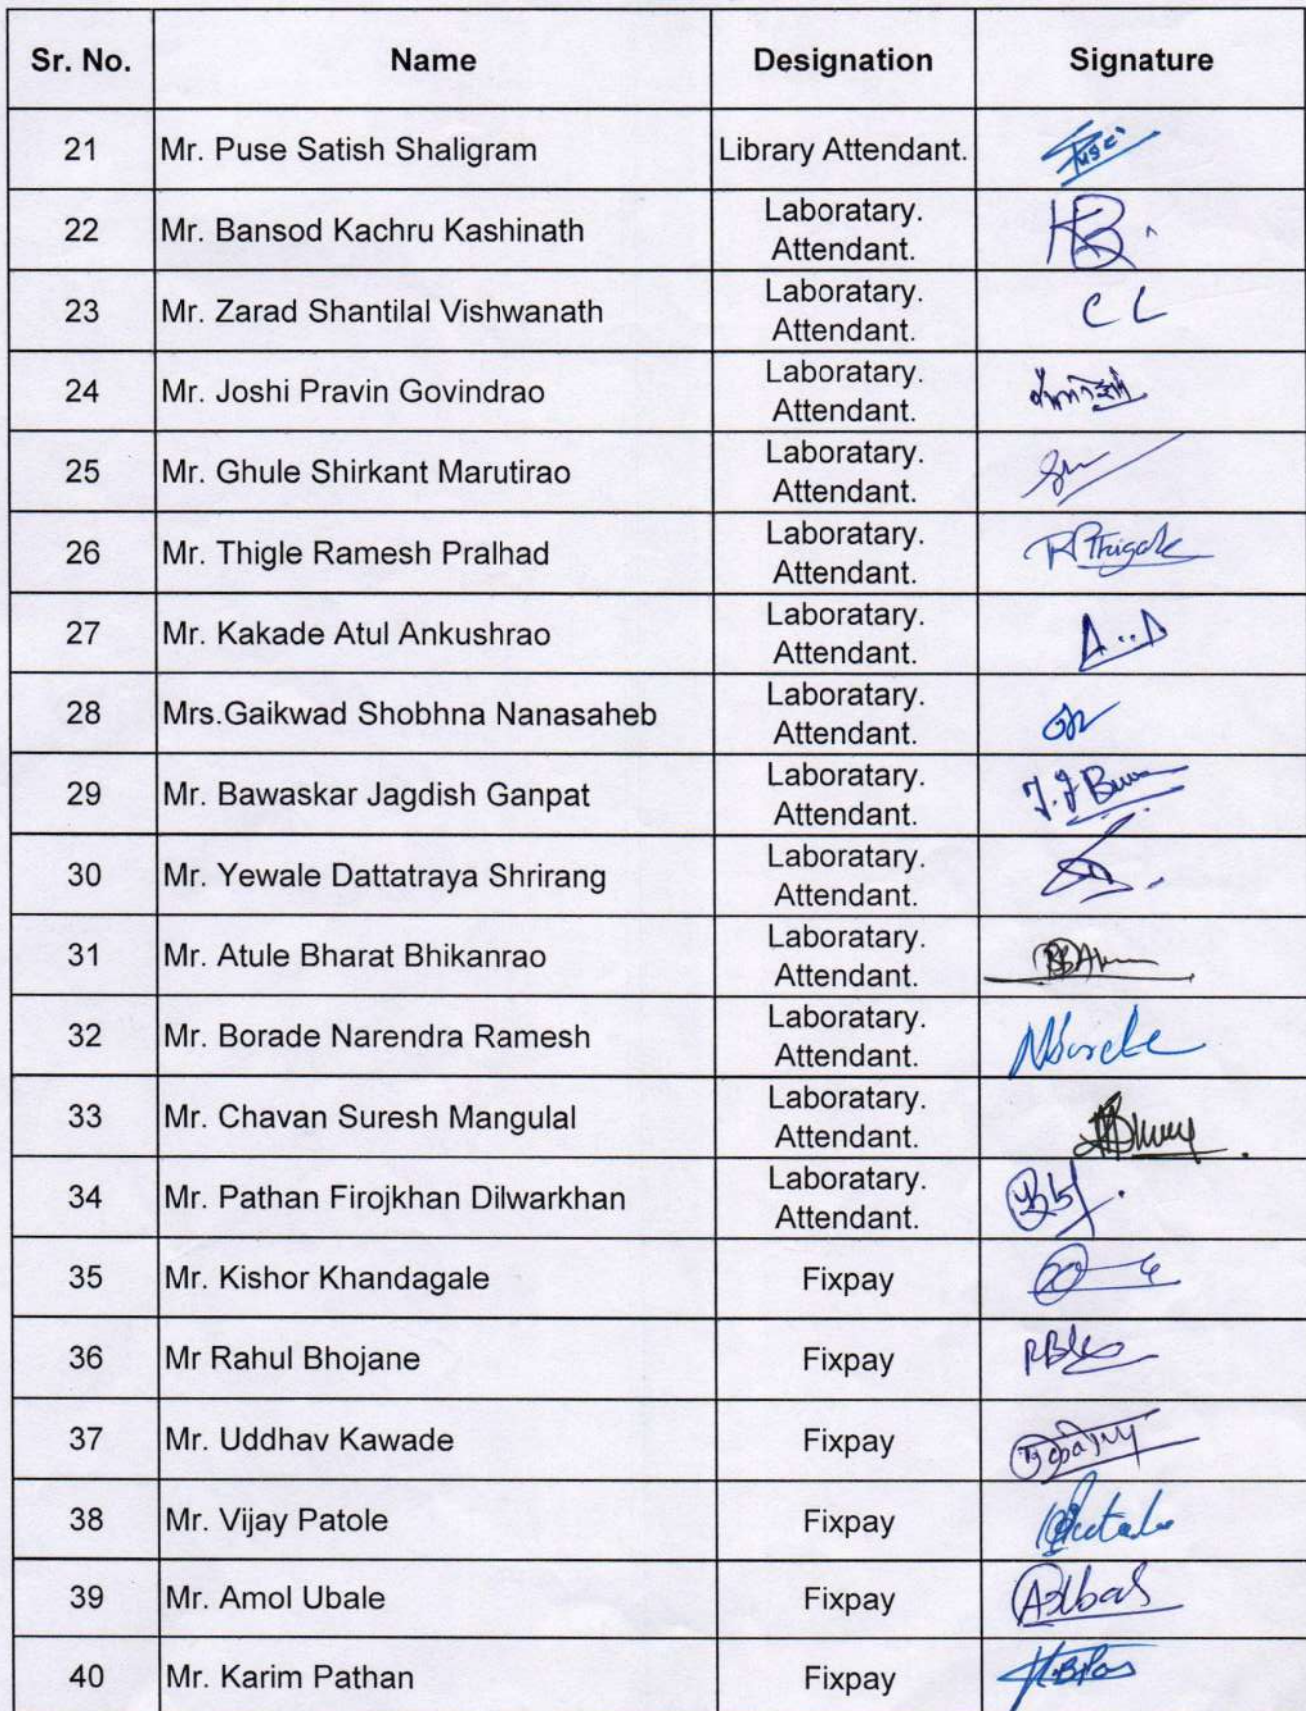 Sr. No. Name Designation Signature
21 Mr. Puse Satish Shaligram Library Attendant. Puse
22 Mr. Bansod Kachru Kashinath Laboratary.
Attendant.
23 Mr. Zarad Shantilal Vishwanath Laboratary.
Attendant. CL
24 Mr. Joshi Pravin Govindrao Laboratary.
Attendant.
25 Mr. Ghule Shirkant Marutirao Laboratary.
Attendant.
26 Mr. Thigle Ramesh Pralhad Laboratary.
Attendant. RPThigale
27 Mr. Kakade Atul Ankushrao Laboratary.
Attendant.
28 Mrs.Gaikwad Shobhna Nanasaheb Laboratary.
Attendant.
29 Mr. Bawaskar Jagdish Ganpat Laboratary.
Attendant.
30 Mr. Yewale Dattatraya Shrirang Laboratary.
Attendant.
31 Mr. Atule Bharat Bhikanrao Laboratary.
Attendant.
32 Mr. Borade Narendra Ramesh Laboratary.
Attendant.
33 Mr. Chavan Suresh Mangulal Laboratary.
Attendant.
34 Mr. Pathan Firojkhan Dilwarkhan Laboratary.
Attendant.
35 Mr. Kishor Khandagale Fixpay
36 Mr Rahul Bhojane Fixpay
37 Mr. Uddhav Kawade Fixpay
38 Mr. Vijay Patole Fixpay
39 Mr. Amol Ubale Fixpay
40 Mr. Karim Pathan Fixpay